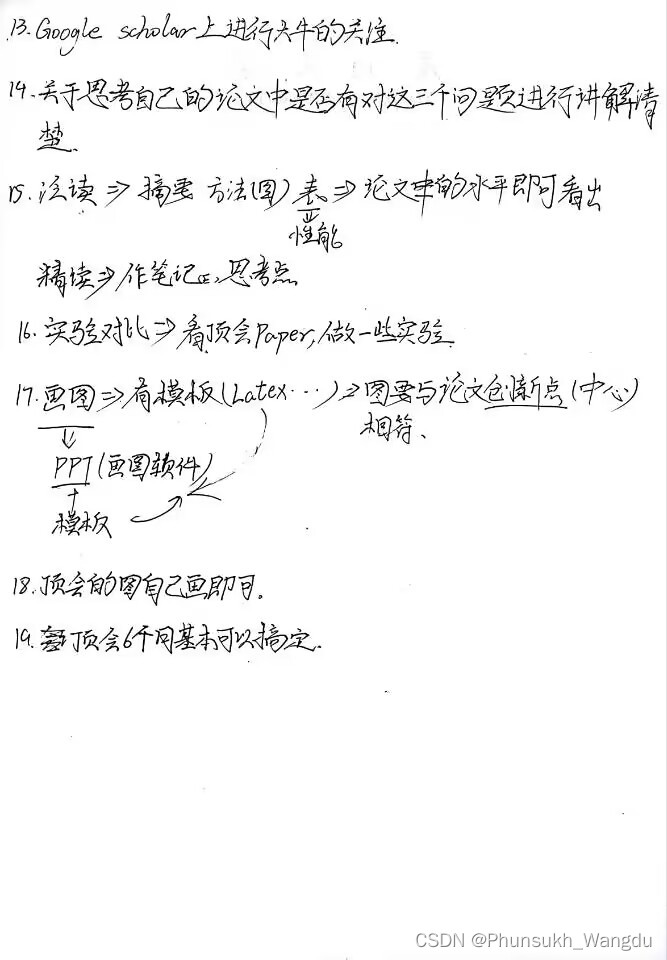 13. Google scholar上进行大牛的关注.
14. 关于思考自己的论文中是否有对这三个问题进行讲解清
楚.
15. 泛读⇒ 摘要 方法(图) 表⇒论文中的水平即可看出
性能
精读⇒作笔记, 思考点
16. 实验对比⇒看顶会Paper,做一些实验.
17. 画图⇒有模板(Latex…)⇒图要与论文创新点(中心)
相符、
PPT(画图软件)
+
模板
18. 顶会的图自己画即可.
19. 顶会6个月基本可以搞定.
CSDN @Phunsukh_Wangdu